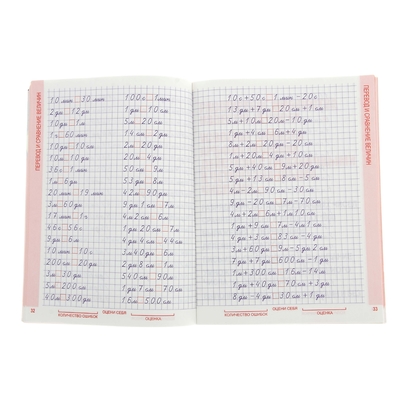 ПЕРЕВОД И СРАВНЕНИЕ ВЕЛИЧИН
10 мин 30 мин
2 дм 12 дм
10 дм 1 м
1 ч 60 мин
10 дм 10 см
10 м 10 дм
36 с 1 мин
1 м 6 дм
20 мин 19 мин
3 м 60 дм
17 мин 1 ч
46 с 56 с
9 дм 6 м
10 мин 10 с
200 см 20 дм
3 м 30 дм
5 м 200 см
40 м 300 дм
100 с 1 мин
5 м 20 см
14 см 2 дм
2 м 20 дм
20 м 4 дм
50 см 9 м
53 дм 8 м
42 м 90 дм
9 дм 1 см 7 м
6 дм 2 см 6 м
1 дм 20 см 7 м
4 дм 4 см 4 м
3 м 40 дм 6 м
2 дм 8 см 1 м
540 см 90 м
1 дм 7 см 70 см
16 м 500 см
ОЦЕНИ СЕБЯ
КОЛИЧЕСТВО ОШИБОК
ОЦЕНКА
10 с + 50 с 1 мин - 20 с
13 дм + 7 дм 20 см + 1 см
5 м + 10 м 20 м - 10 дм
1 дм + 4 см 6 м + 4 дм
8 м + 2 м 20 дм - 20 см
1 м + 20 м 4 дм + 10 см
5 дм + 40 см 9 м + 20 см
5 дм + 13 см 8 см - 5 см
4 м - 2 м 90 см - 30 см
9 дм - 20 см 7 м - 70 см
4 м + 2 м 6 м + 1 м 10 см
1 дм + 9 см 1 м - 4 дм
4 дм + 3 см 83 см - 4 дм
3 м + 60 дм 9 м - 5 дм 2 см
7 дм + 7 дм 600 см - 1 дм
1 м + 300 см 16 м - 14 м
1 дм + 40 дм 70 см + 3 см
8 дм - 4 дм 30 см + 1 дм
ПЕРЕВОД И СРАВНЕНИЕ ВЕЛИЧИН
КОЛИЧЕСТВО ОШИБОК
ОЦЕНИ СЕБЯ
ОЦЕНКА